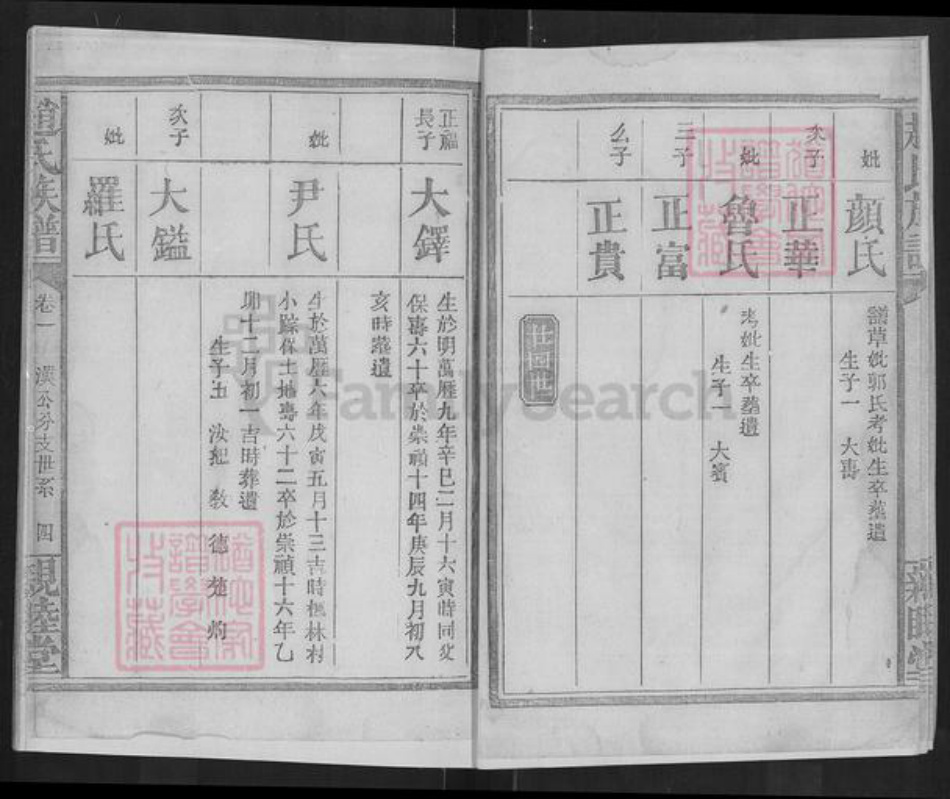 妣
顏氏
譜草妣郭氏考妣生卒葬遺
生子一 大壽
次子
正華
妣
魯氏
考妣生卒葬遺
生子一 大賓
三子
正富
么子
正貴
正福長子
大鐸
生於明萬歷九年辛巳二月十六寅時同父
保壽六十卒於崇禎十四年庚辰九月初八
亥時葬遺
妣
尹氏
生於萬歷六年戊寅五月十三吉時楓林村
小踪保土地壽六十二卒於崇禎十六年乙
卯十二月初一吉時葬遺
生子五 汝把 教 德 楚 灼
次子
大鎰
妣
羅氏
趙氏族譜
卷一
漢公分支世系
四
親睦堂
FamilySearch